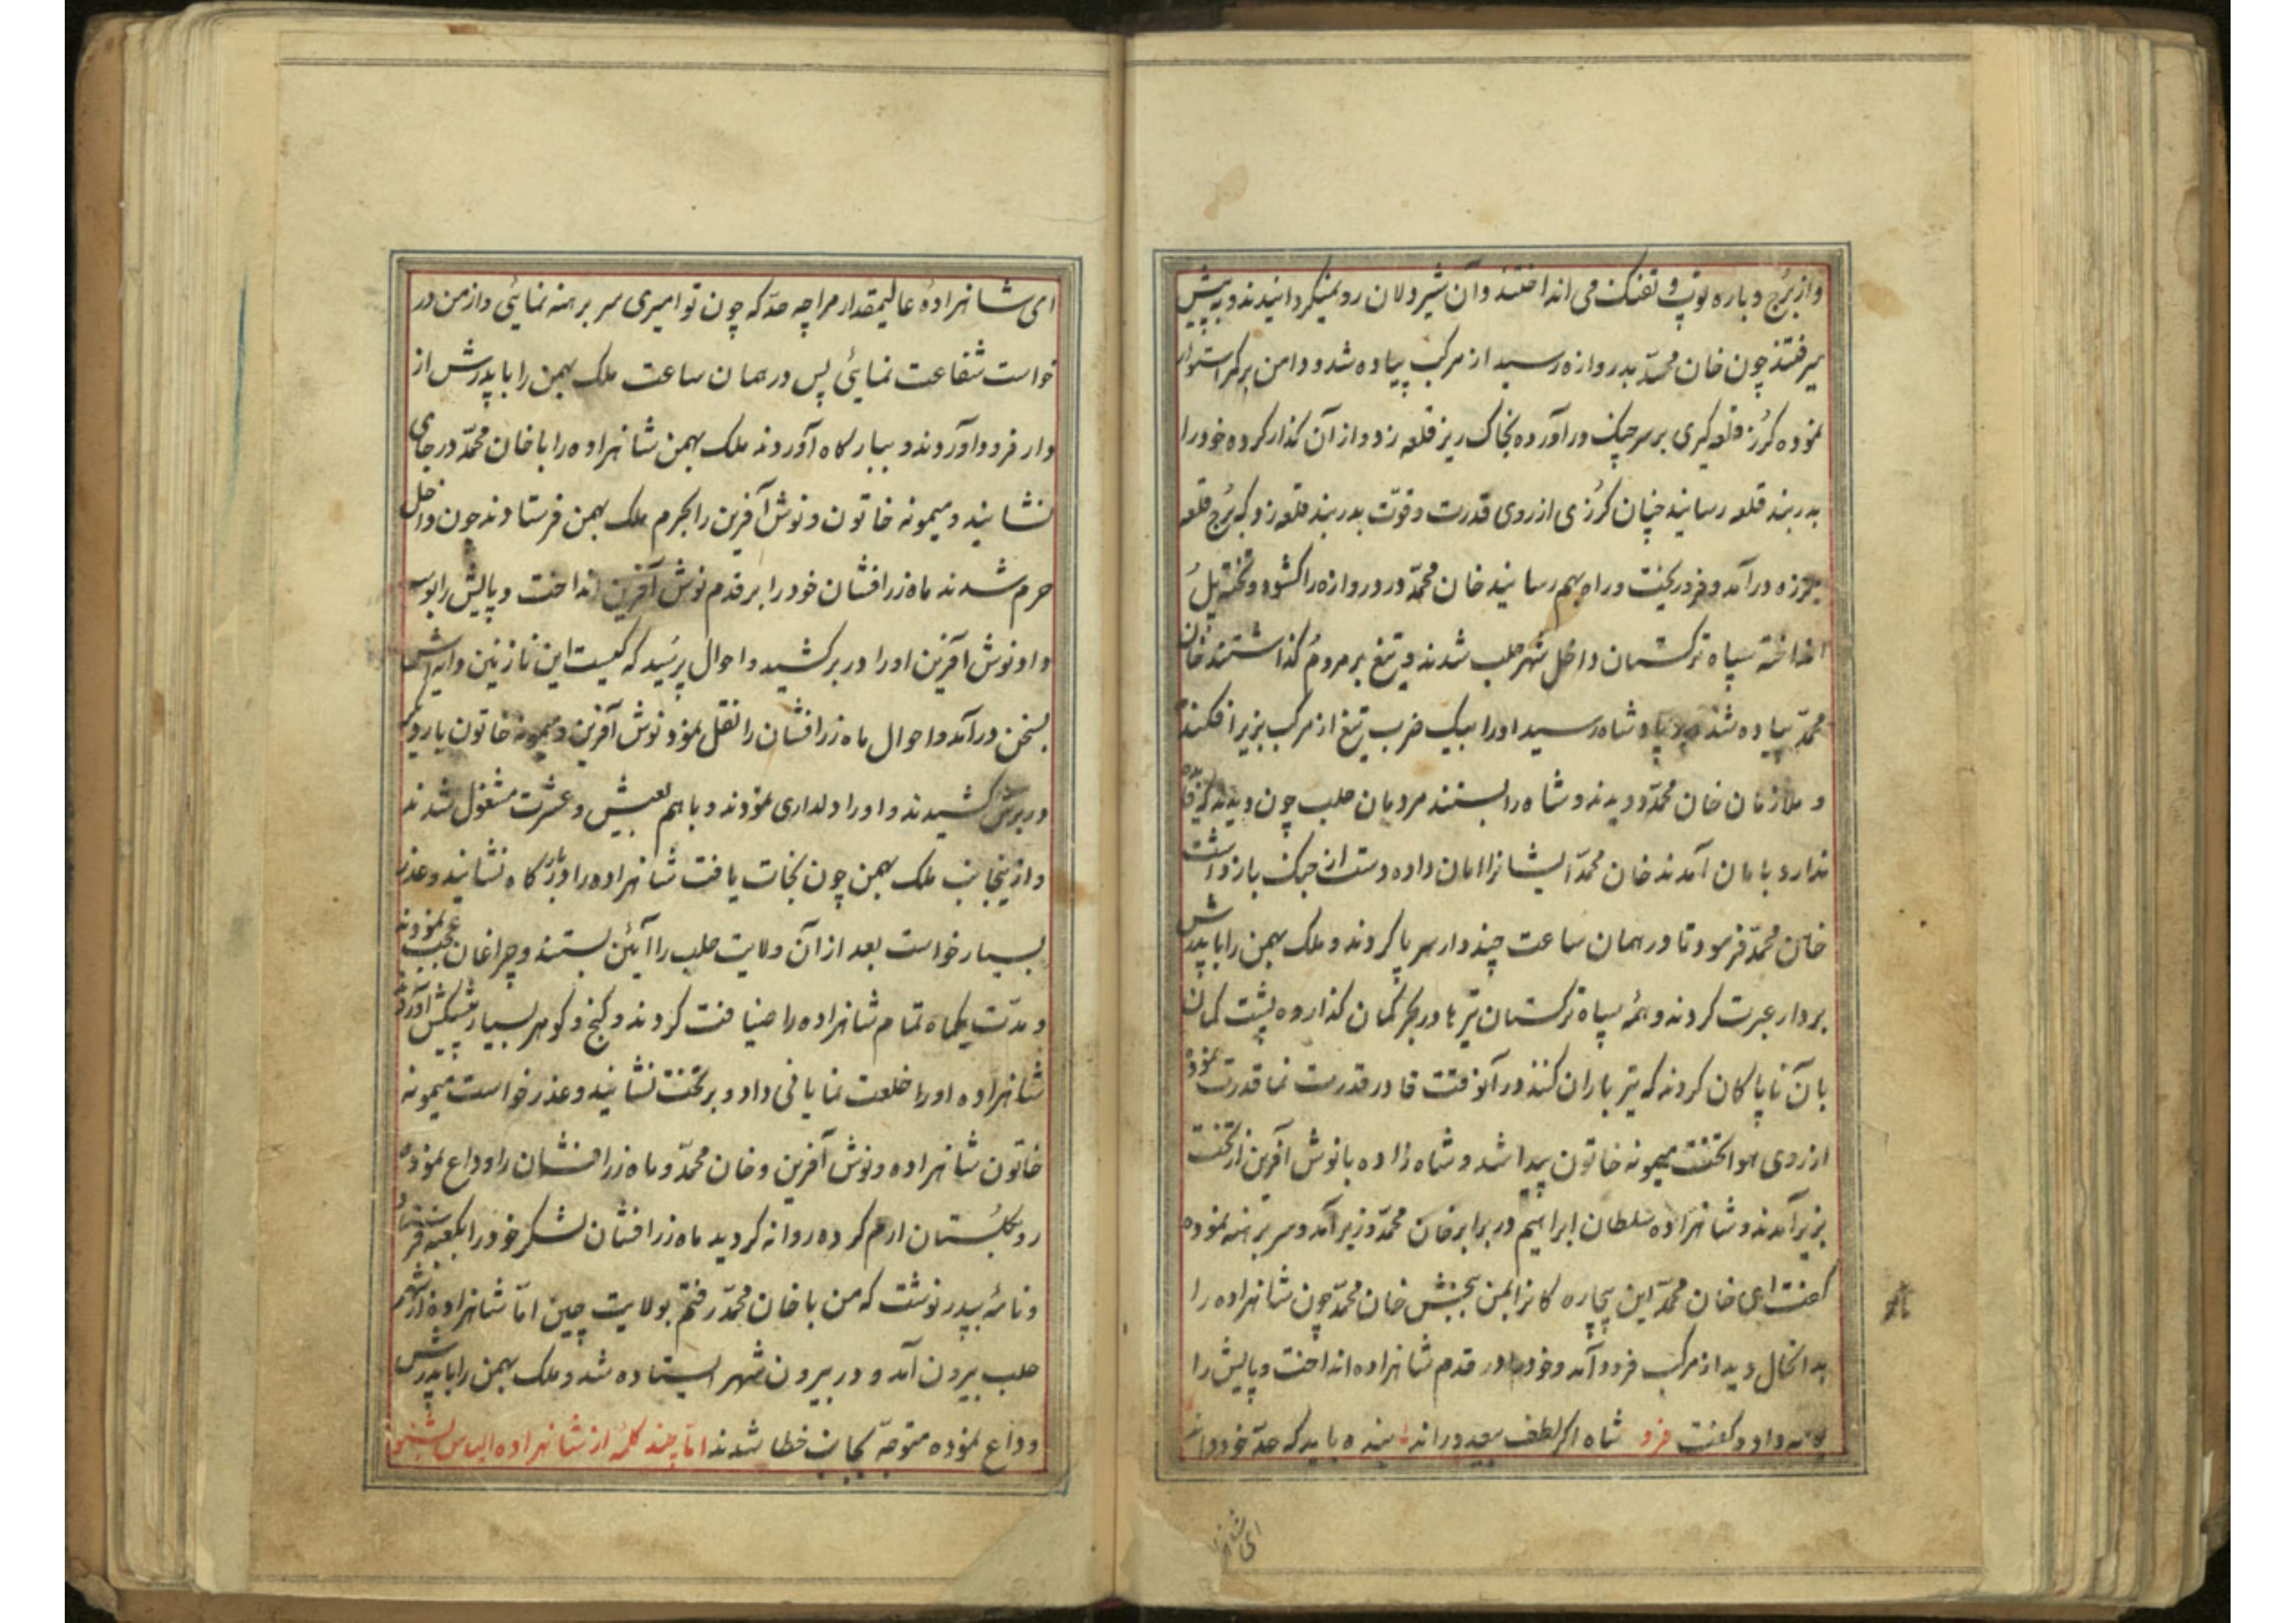 واز برج و باره توپ و تفنک می انداختند وان شیردلان رو نمیکردانیدند و به پیش
میرفتند چون خان محمّد بدروازه رسید از مرکب پیاده شد و دامن بر کمر استوار
نموده کرُز قلعه کیری بر سر چنک درآورده بخاک ریز قلعه زد و از آن کذار کرده خود را
بدربند قلعه رسانید چنان کرُزی از روی قدرت و قوّت بدربند قلعه زد که برُج قلعه
بلرزه درآمد و فرو ریخت و راه بهم رسانید خان محمّد در دروازه را کشود و تخته پل
انداخته سپاه ترکستان داخل شهر حلب شدند و تیغ بر مردمُ کذاشتند خان
محمّد پیاده شد پادشاه رسید اورا بیک ضرب تیغ از مرکب بزیر افکند
و ملازمان خان محمّد دویدند و شاه را بستند مردمان حلب چون دیدند که فایده
ندارد بامان آمدند خان محمّد ایشانرا امان داده دست از جنک باز داشت
خان محمّد فرمود تا در همان ساعت چند دار سر پا کردند و ملک بهمن را با پدرش
بردار عبرت کردند و همهٔ سپاه ترکستان تیرها در بحر کمان کذارده پشت کمان
بآن ناپاکان کردند که تیر باران کنند در آنوقت قادر قدرت نما قدرت نموده
از روی هوا تخت میمونه خاتون پیدا شد و شاه زاده بانوش آفرین از تخت
بزیر آمدند و شاهزاده سُلطان ابراهیم در برابر خان محمّد زیر آمد و سر برهنه نموده
کفت ای خان محمّد این بیچاره کانرا بمن ببخش خان محمّد چون شاهزاده را
بدانحال دید از مرکب فرود آمد و خود را در قدم شاهزاده انداخت و پایش را
بوسه داد و کفت فرد شاه اکر لطف بیعدد راند بنده باید که حدّ خود داند
ای شاهزا
ای شاهزادهٔ عالیمقدار مرا چه حدّ که چون تو امیری سر برهنه نمایئی و از من در
خواست شفاعت نمایئی پس در همان ساعت ملک بهمن را با پدرش از
دار فرود آوردند و ببارکاه آوردند ملک بهمن شاهزاده را با خان محمّد در جای
نشانید و میمونه خاتون و نوش آفرین را بحرم ملک بهمن فرستادند چون داخل
حرم شدند ماه زرافشان خود را بر قدم نوش آفرین انداخت و پایش را بوسه
داد نوش آفرین اورا در بر کشید و احوال پرسُید که کیست این نازنین دایه اش
بسخن درآمد و احوال ماه زرافشان را نقل نمود نوش آفرین و میمونه خاتون بار دیکر
در برش کشیدند و او را دلداری نمودند و با هم بعیش و عشرت مشغول شدند
و از ینجانب ملک بهمن چون نجات یافت شاهزاده را در بارکاه نشانید و عذر
بسیار خواست بعد از آن ولایت حلب را آئین بستند و چراغان عجب نمودند
و مدّت یکماه تمام شاهزاده را ضیافت کردند و کنج و کوهر بسیار پیشکش آوردند
شاهزاده اورا خلعت نمایانی داد و بر تخت نشانید و عذر خواست میمونه
خاتون شاهزاده و نوش آفرین و خان محمّد و ماه زرافشان را وداع نموده
رو بکلسُتان ارم کرده روانه کردید ماه زرافشان لشکر خود را بکعبه فرستاد
و نامهٔ بپدر نوشت که من با خان محمّد رفتم بولایت چین امّا شاهزاده از شهر
حلب بیرون آمد و در بیرون شهر ایستاده شد و ملک بهمن را با پدرش
وداع نموده متوجّه بجانب خطا شدند امّا چند کلمهٔ از شاهزاده الیاس بشنو